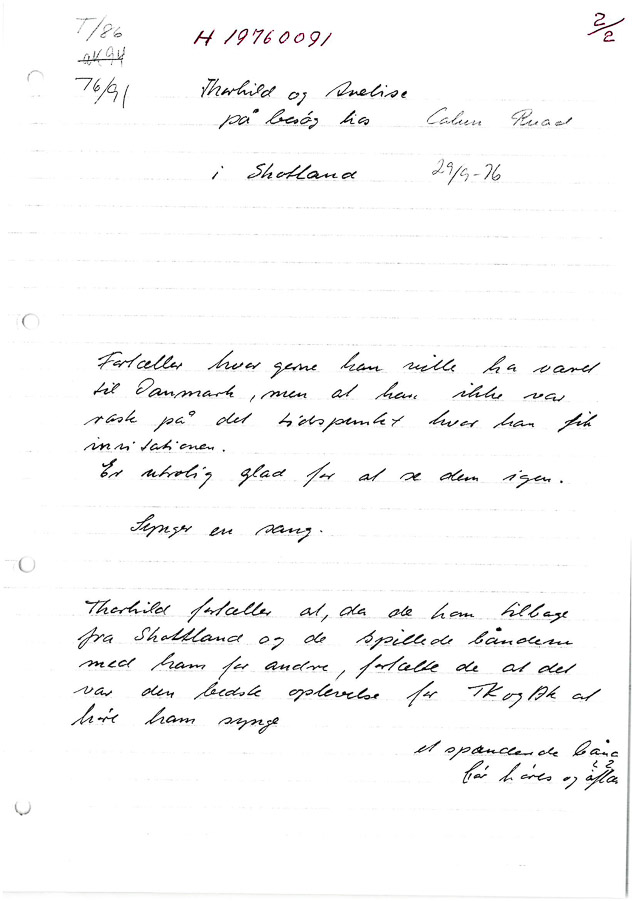 T/86
H 19760091
2/2
AK94
76/91
Thorhild og Anelise
på besøg hos Calum Ruad
i Skotland 29/9-76
Fortæller hvor gerne han ville ha været
til Danmark, men at han ikke var
rask på det tidspunkt hvor han fik
invitationen.
Er utrolig glad for at se dem igen.
Synger en sang.
Thorhild fortæller at, da de kom tilbage
fra Skottland og de spillede båndene
med ham for andre, fortalte de at det
var den bedste oplevelse for TK og AK at
høre ham synge
et spændende bånd
bør høres og